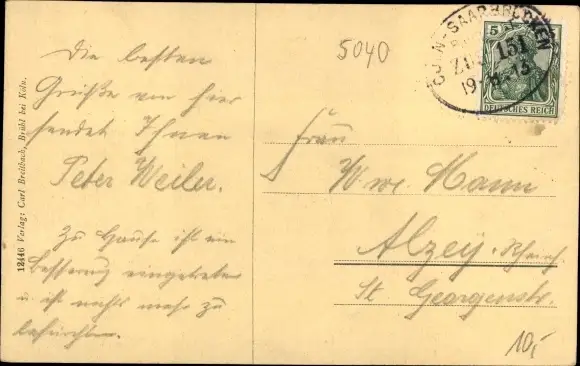 Die besten
Grüße von hier
sendet Ihnen
Peter Weiler.
Zu Hause ist ein
Besserung eingetreten
u. ist nichts mehr zu
befürchten.
12446 Verlag: Carl Breitbach, Brühl bei Köln.
5040
5
CÖLN-SAARBRÜCKEN
ZUG 151
19 13
DEUTSCHES REICH
Frau
Wwe. Mann
Alzey, Rheinh.
St. Georgenstr.
10,-